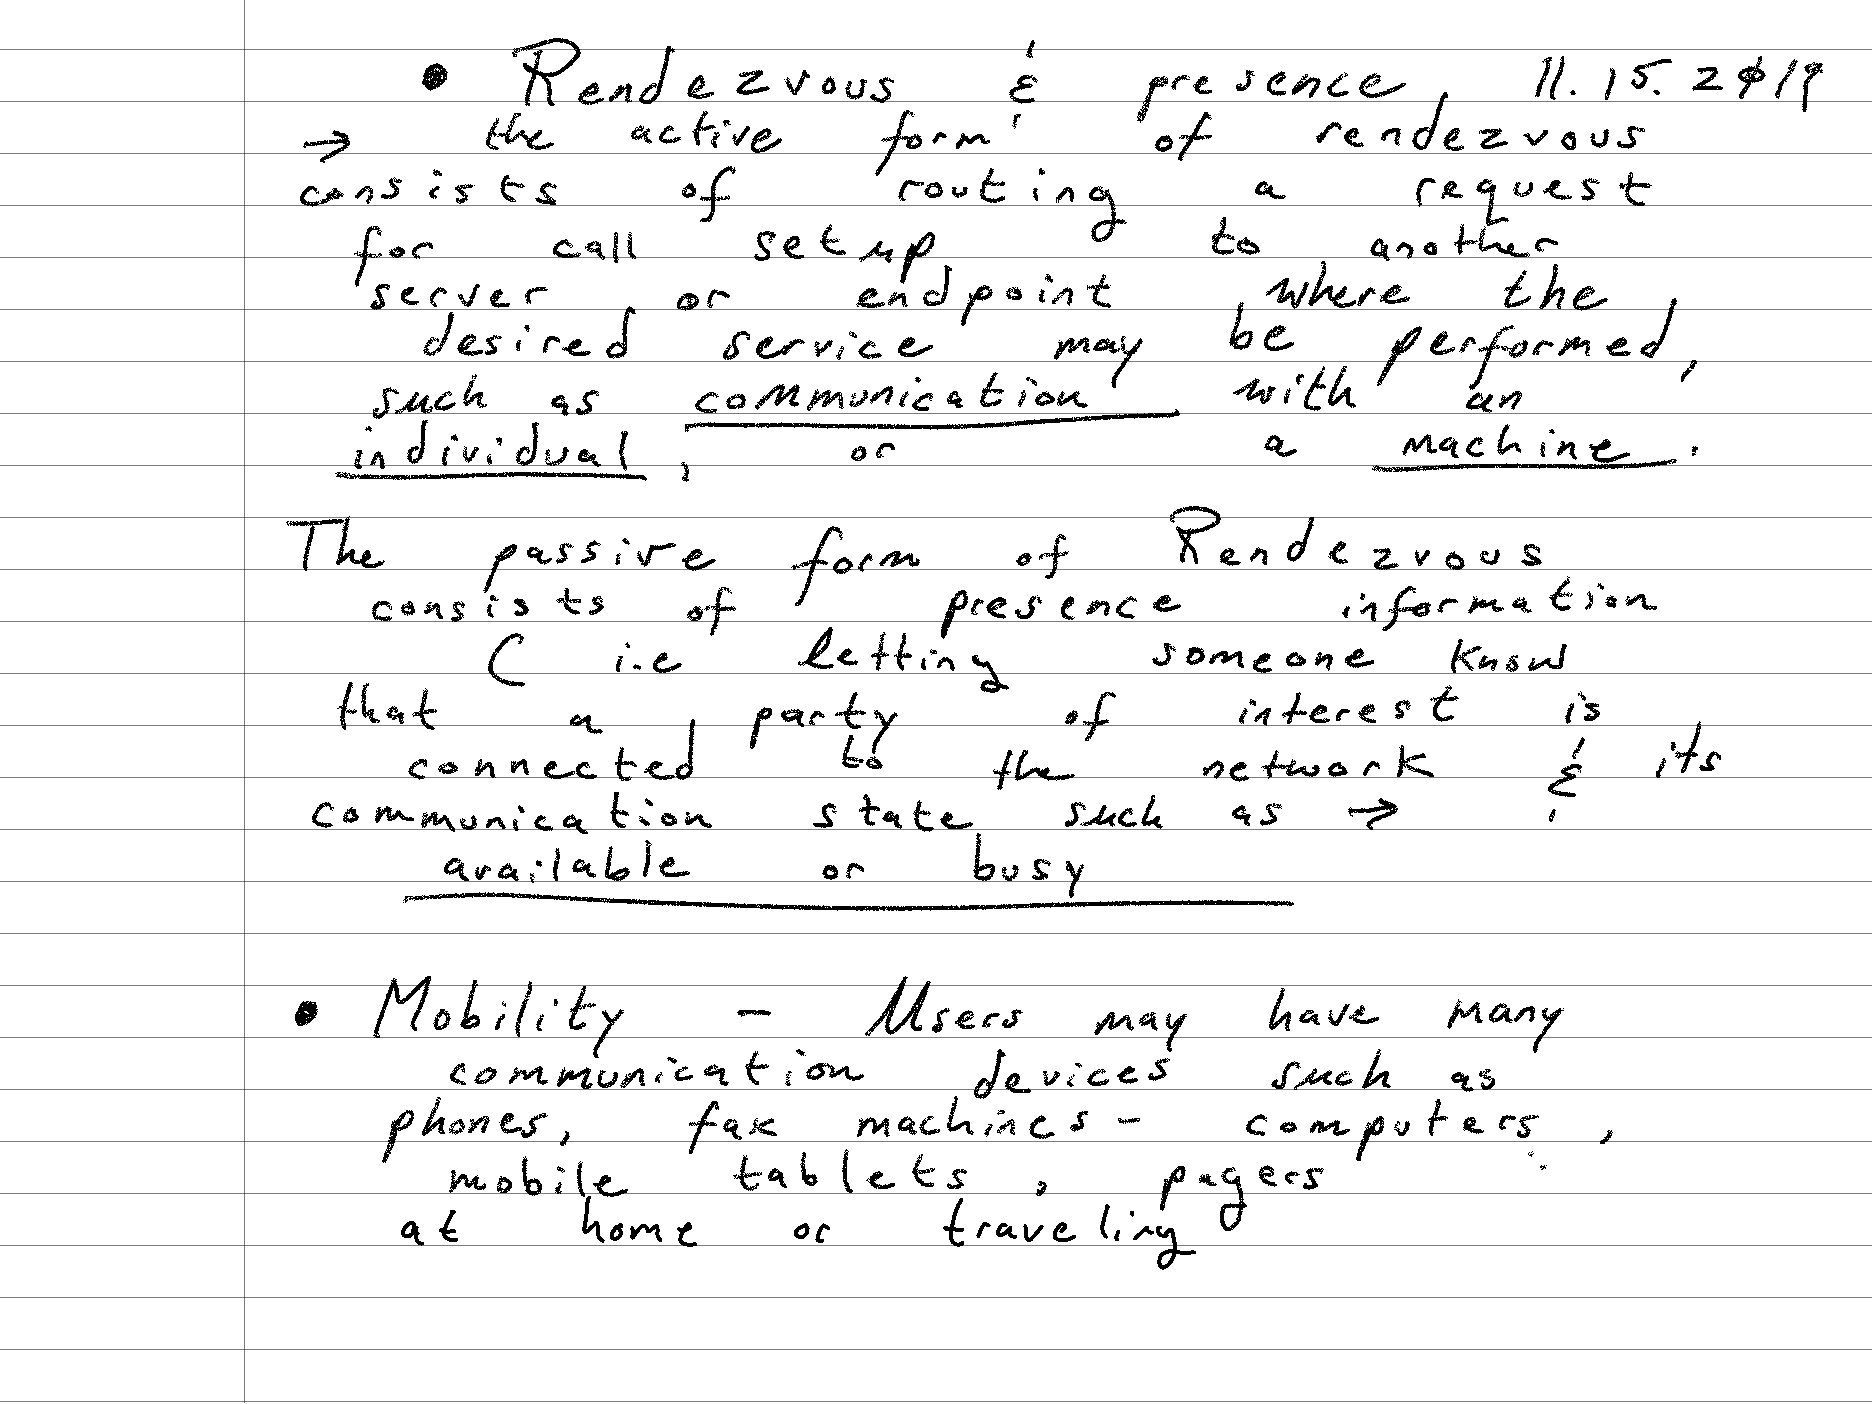 • Rendezvous & presence 11.15.2019
→ the active form of rendezvous
consists of routing a request
for call setup to another
server or endpoint where the
desired service may be performed,
such as communication with an
individual, or a machine.
The passive form of Rendezvous
consists of presence information
( i.e letting someone know
that a party of interest is
connected to the network & its
communication state such as →
available or busy
• Mobility - Users may have many
communication devices such as
phones, fax machines - computers,
mobile tablets, pagers
at home or traveling